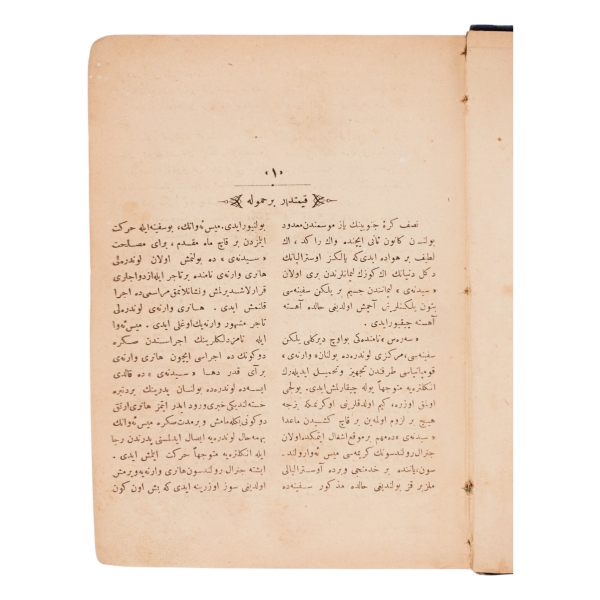 «١»
قیمتدار بر حموله
نصف كرۀ جنوبینك یاز موسمندن معدود
بولنان كانون ثانی ایچنده واك راكد ، اك
لطیف بر هواده ایدی‌كه یالكز اوسترالیانك
دكل دنیانك اك كوزل لیمانلرندن بری اولان
«سیدنه‌ی» لیمانندن جسیم بر یلكن سفینه‌سی
بتون یلكنلرینی آچمش اولدیغی حالده آهسته
آهسته چیقیور ایدی .
نامنده‌كی بو اوچ دیركلی یلكن
سفینه‌سی ، مركزی لوندره‌ده بولنان «وارنه‌ی»
قومپانیاسی طرفندن تجهیز وتحمیل ایدیله‌رك
انكلتره‌یه متوجهاً یوله چیقارلمش ایدی . یولجی
اولمق اوزره ، كیم اولدقلرینی اوكرنمكه بزجه
هیچ بر لزوم اولمه‌ین بر قاچ كشیدن ماعدا
«سیدنه‌ی» ده‌مهم بر موقع اشغال ایتمكده اولان
جنرال رولندسونك كریمه‌سی میس ئه‌وا رولند-
سون ، یاننده بر خدمتجی و برده آوسترالیالی
ملز بر قز بولندیغی حالده مذكور سفینه‌ده
بولنیور ایدی . میس ئه‌وانك ، بو سفینه ایله حركت
ایتمزدن بر قاچ ماه مقدم ، برای مصلحت
«سیدنه‌ی» ده بولنمش اولان لوندره‌لی
هانری وارنه‌ی نامنده بر تاجر ایله ازدواجلری
قرارلاشدیرلمش و نشانلانمق مراسمی ده اجرا
قلنمش ایدی . هانری وارنه‌ی لوندره‌لی
تاجر مشهور وارنه‌یك اوغلی ایدی . میس ئه‌وا
ایله نامزدلكلرینك اجراسندن صكره
دوكونك ده اجراسی ایچون هانری وارنه‌ی
بر آی قدر دها «سیدنه‌ی» ده قالدی
ایسه‌ده لوندره‌ده بولنان پدرینك بردنبره
خسته‌لندیكی خبری ورود ایدر ایتمز هانری آرتق
دوكونی بكله‌مامش و بر مدت صكره میس ئه‌وانك
بهمه‌حال لوندره‌یه ایصال ایدلمسنی پدرندن رجا
ایله انكلتره‌یه متوجهاً حركت ایتمش ایدی .
ایشته جنرال رولندسون هانری وارنه‌یه ویرمش
اولدیغی سوز اوزرینه ایدی كه بش اون كون